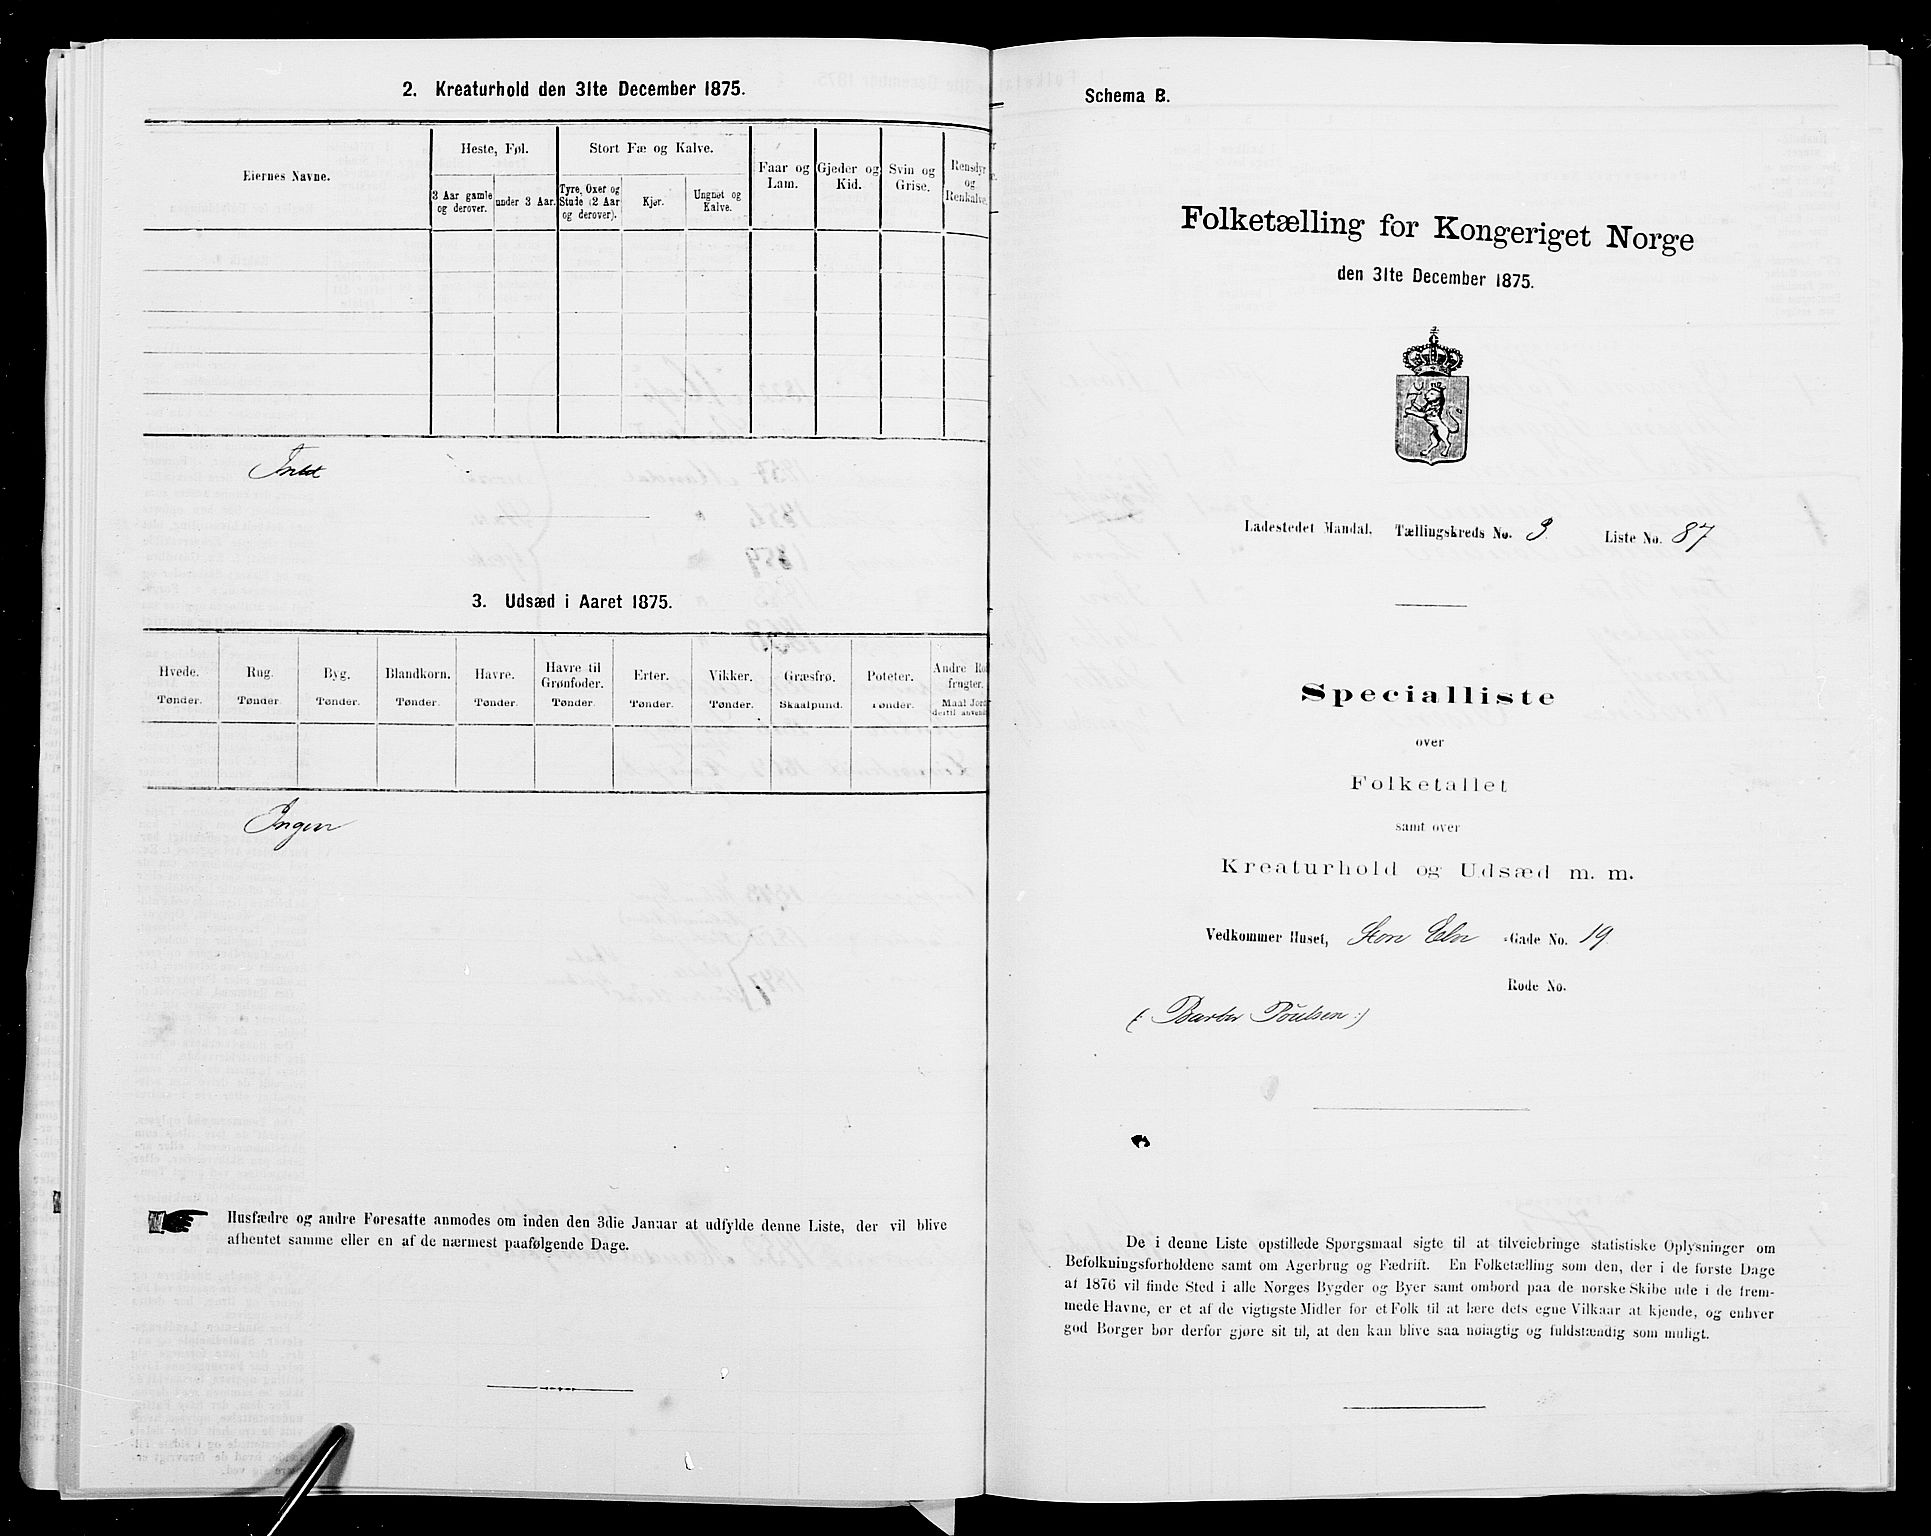 2. Kreaturhold den 31te December 1875.
Eiernes Navne.
Heste, Føl.
Stort Fæ og Kalve.
Faar og Lam.
Gjeder og Kid.
Svin og Grise.
Rensdyr og Renkalve.
3 Aar gamle og derover.
under 3 Aar.
Tyre, Oxer og Stude (2 Aar og derover).
Kjør.
Ungnøt og Kalve.
3. Udsæd i Aaret 1875.
Hvede.
Rug.
Byg.
Blandkorn.
Havre.
Havre til Grønfoder.
Erter.
Vikker.
Græsfrø.
Poteter.
Andre Ro
frugter.
Tønder.
Tønder.
Tønder.
Tønder.
Tønder.
Tønder.
Tønder.
Tønder.
Skaalpund.
Tønder.
Maal Jord
dertil anvend
Ingen
Husfædre og andre Foresatte anmodes om inden den 3die Januar at udfylde denne Liste, der vil blive
afhentet samme eller en af de nærmest paafølgende Dage.
Schema B.
Folketælling for Kongeriget Norge
den 31te December 1875.
Ladestedet Mandal. Tællingskreds No. 3. Liste No. 87
Specialliste
over
Folketallet
samt over
Kreaturhold og Udsæd m. m.
Vedkommer Huset, Store Elve -Gade No. 19
Rode No.
(: Barbr Poulsen :)
De i denne Liste opstillede Spørgsmaal sigte til at tilveiebringe statistiske Oplysninger om
Befolkningsforholdene samt om Agerbrug og Fædrift. En Folketælling som den, der i de første Dage
af 1876 vil finde Sted i alle Norges Bygder og Byer samt ombord paa de norske Skibe ude i de frem-
mede Havne, er et af de vigtigste Midler for et Folk til at lære dets egne Vilkaar at kjende, og enhver
god Borger bør derfor gjøre sit til, at den kan blive saa nøiagtig og fuldstændig som muligt.